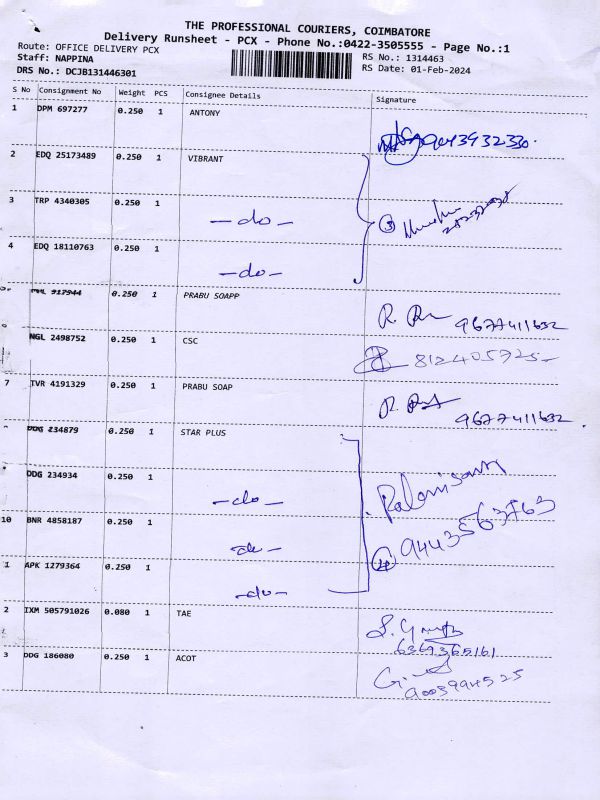 THE PROFESSIONAL COURIERS, COIMBATORE
Delivery Runsheet - PCX - Phone No.:0422-3505555 - Page No.:1
Route: OFFICE DELIVERY PCX
Staff: NAPPINA
DRS No.: DCJB131446301
RS No.: 1314463
RS Date: 01-Feb-2024
S No Consignment No Weight PCS Consignee Details Signature
1 DPM 697277 0.250 1 ANTONY
2 EDQ 25173489 0.250 1 VIBRANT
3 TRP 4340305 0.250 1 -do-
3
4 EDQ 18110763 0.250 1 -do-
917944 0.250 1 PRABU SOAPP
R. 9677411632
NGL 2498752 0.250 1 CSC
812405725-
7 TVR 4191329 0.250 1 PRABU SOAP
R. 9677411632
DDG 234879 0.250 1 STAR PLUS
DDG 234934 0.250 1 -do-
10 BNR 4858187 0.250 1 -do-
4 9443563763
1 APK 1279364 0.250 1 -do-
2 IXM 505791026 0.080 1 TAE
6369365161
3 DDG 186080 0.250 1 ACOT
9003994525